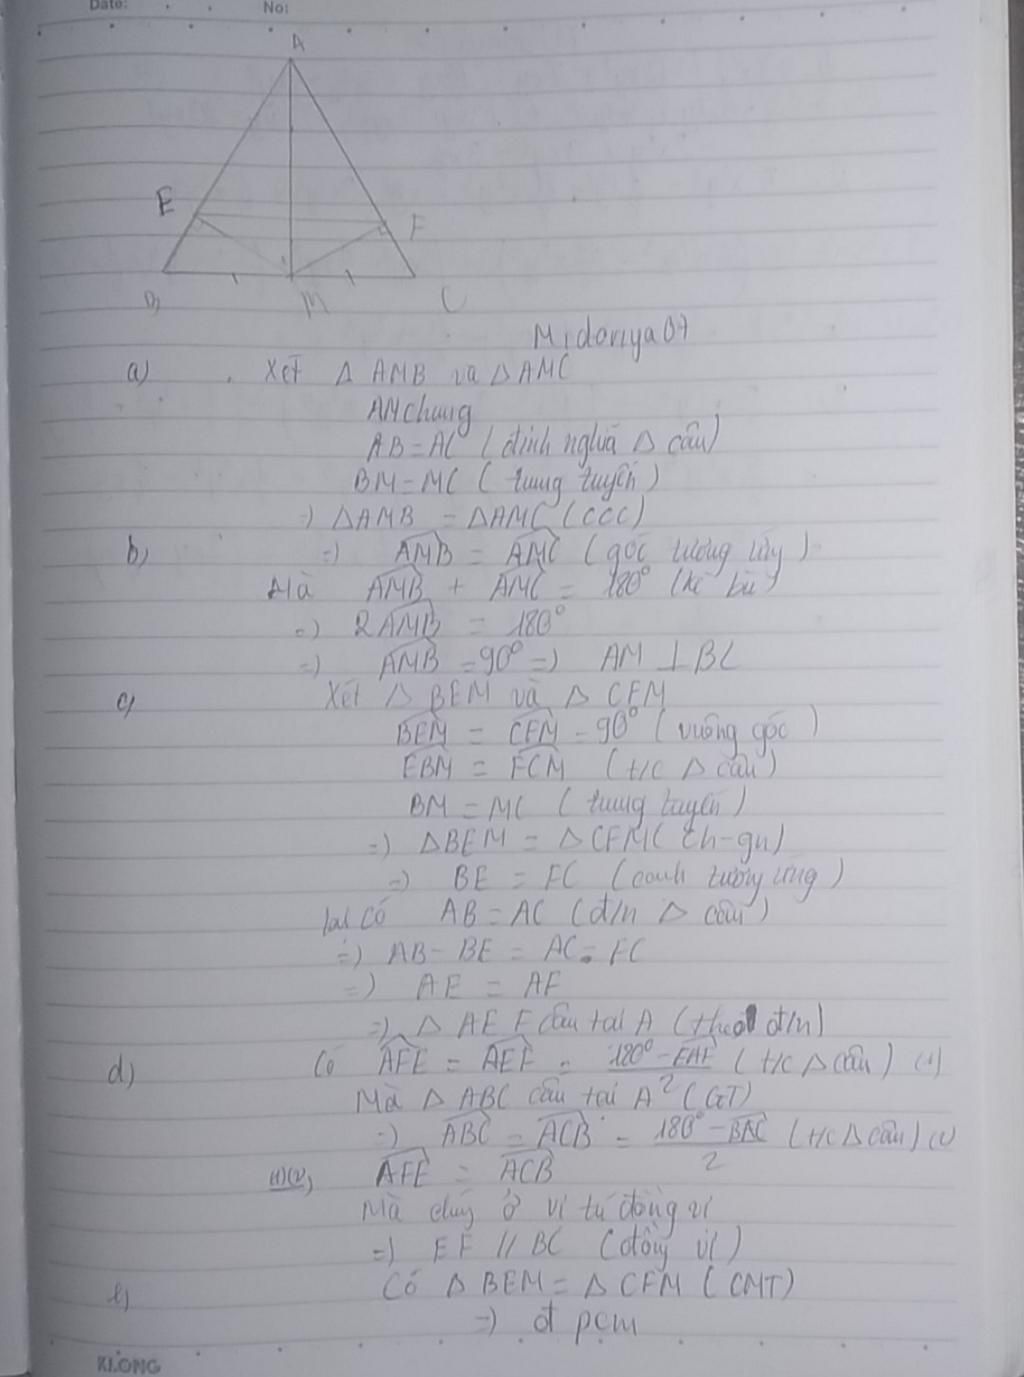 Date: No:
A
E
F
B M C
Midoriya07
a) Xét Δ AMB và Δ AMC
AM chung
AB = AC (định nghĩa Δ cân)
BM = MC (trung tuyến)
=) ΔAMB = ΔAMC (CCC)
b) =) AMB = AMC (góc tương ứng)
Mà AMB + AMC = 180° (kề bù)
=) 2AMB = 180°
=) AMB = 90° =) AM ⊥ BC
c) Xét Δ BEM và Δ CFM
BEM = CFM = 90° (vuông góc)
EBM = FCM (t/c Δ cân)
BM = MC (trung tuyến)
=) ΔBEM = ΔCFM (ch-gn)
=) BE = FC (cạnh tương ứng)
lại có AB = AC (đ/n Δ cân)
=) AB - BE = AC - FC
=) AE = AF
=) Δ AEF cân tại A (theo đ/n)
d) Có AFE = AEF = 180° - EAF / 2 (t/c Δ cân) (1)
Mà Δ ABC cân tại A (GT)
=) ABC = ACB = 180° - BAC / 2 (t/c Δ cân) (2)
(1)(2), AFE = ACB
Mà chúng ở vị trí đồng vị
=) EF // BC (đồng vị)
e) Có Δ BEM = Δ CFM (CMT)
=) đpcm
KLONG